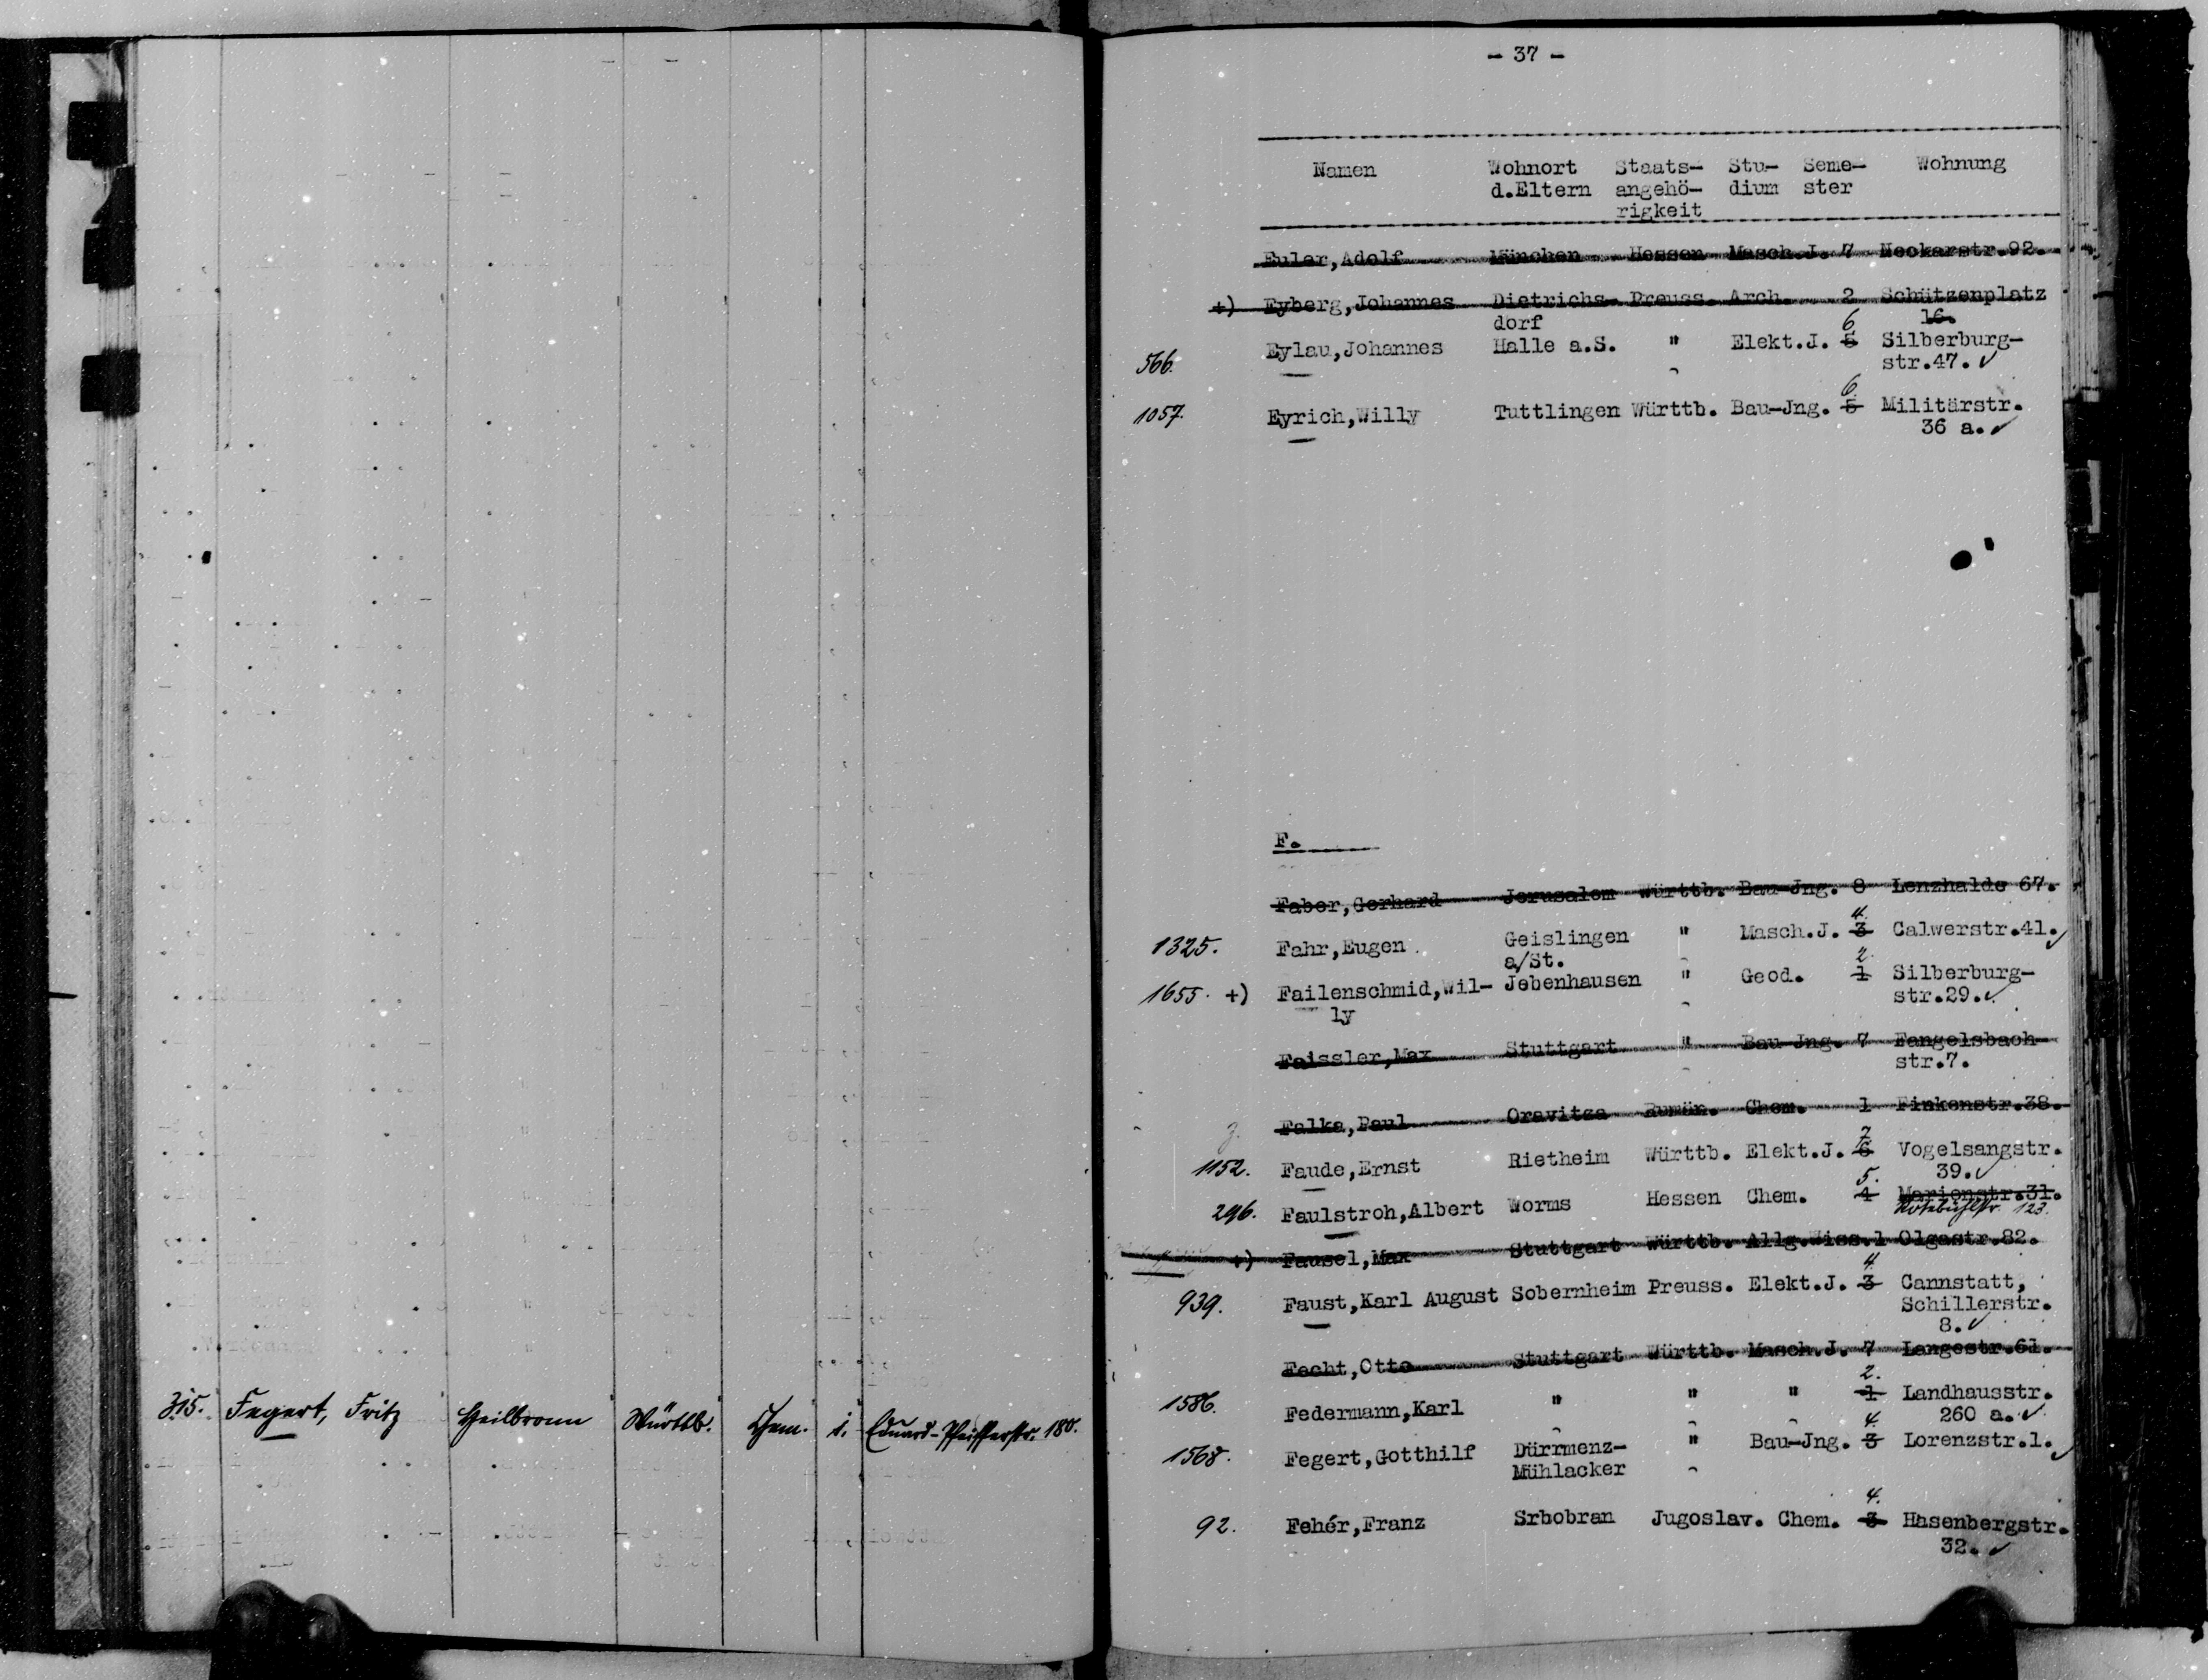 315. Fegert, Fritz Heilbronn Württb. Chem. 1. Eduard-Pfeifferstr. 180.
- 37 -
Namen Wohnort Staats- Stu- Seme- Wohnung
d.Eltern angehö- dium ster
rigkeit
Euler,Adolf München Hessen Masch.J. 7 Neckarstr.92.
+) Eyberg,Johannes Dietrichs- Preuss. Arch. 2 Schützenplatz
dorf 16.
6
566. Eylau,Johannes Halle a.S. " Elekt.J. 5 Silberburg-
str.47. ✓
6.
1057. Eyrich,Willy Tuttlingen Württb. Bau-Jng. 5 Militärstr.
36 a. ✓
F.
Faber,Gerhard Jerusalem Württb. Bau-Jng. 8 Lenzhalde 67.
4.
1325. Fahr,Eugen Geislingen " Masch.J. 3 Calwerstr.41. ✓
a/St.
2.
1655. +) Failenschmid,Wil- Jebenhausen " Geod. 1 Silberburg-
ly str.29. ✓
Faissler,Max Stuttgart " Bau-Jng. 7 Fangelsbach-
str.7.
Falka,Paul Oravitza Rumän. Chem. 1 Finkenstr.38.
7
1152. Faude,Ernst Rietheim Württb. Elekt.J. 6 Vogelsangstr.
39. ✓
5.
296. Faulstroh,Albert Worms Hessen Chem. 4 Marienstr.31.
Rotebühlstr. 123.
+) Fausel,Max Stuttgart Württb. Allg.Wiss.1 Olgastr.82.
4.
939. Faust,Karl August Sobernheim Preuss. Elekt.J. 3 Cannstatt,
Schillerstr.
8. ✓
Fecht,Otto Stuttgart Württb. Masch.J. 7 Langestr.61.
2.
1586. Federmann,Karl " " " 1 Landhausstr.
260 a. ✓
4.
1568. Fegert,Gotthilf Dürrmenz- " Bau-Jng. 3 Lorenzstr.1. ✓
Mühlacker
4.
92. Fehér,Franz Srbobran Jugoslav. Chem. 3 Hasenbergstr.
32. ✓